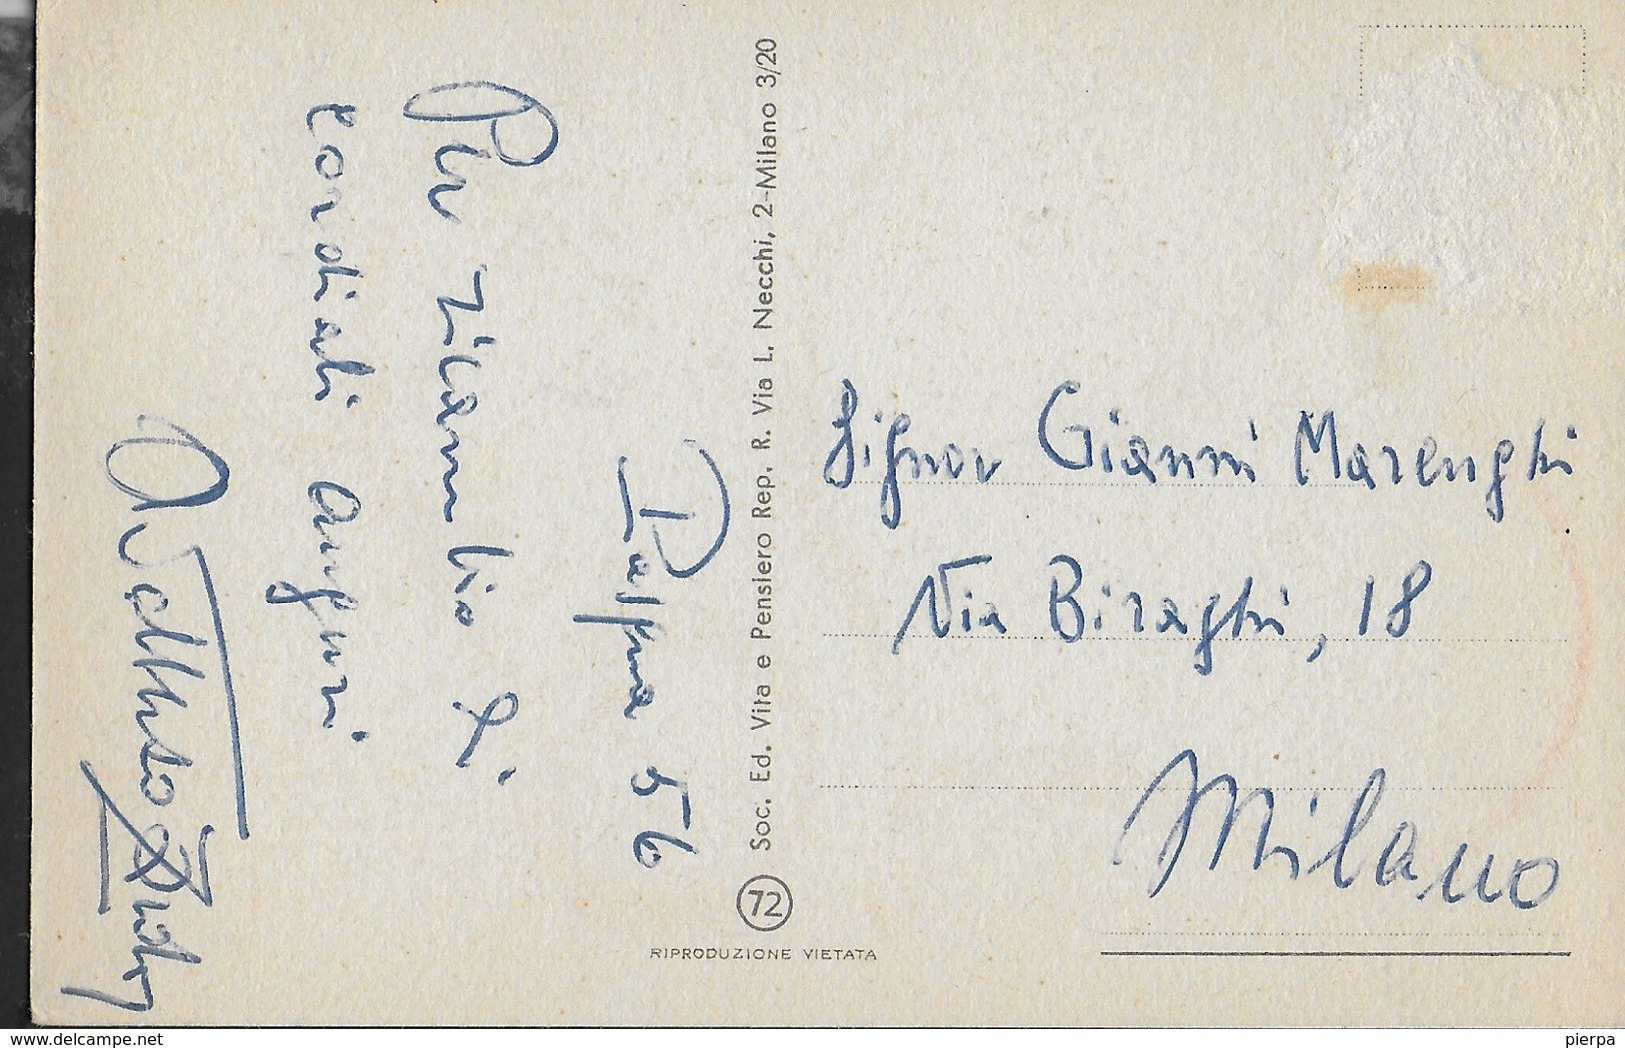 Pasqua 56
Per ricambio di
cordiali auguri
Soc. Ed. Vita e Pensiero Rep. R. Via L. Necchi, 2-Milano 3/20
72
RIPRODUZIONE VIETATA
Signor Gianni Marenghi
Via Biraghi, 18
Milano
www.delcampe.net
pierpa